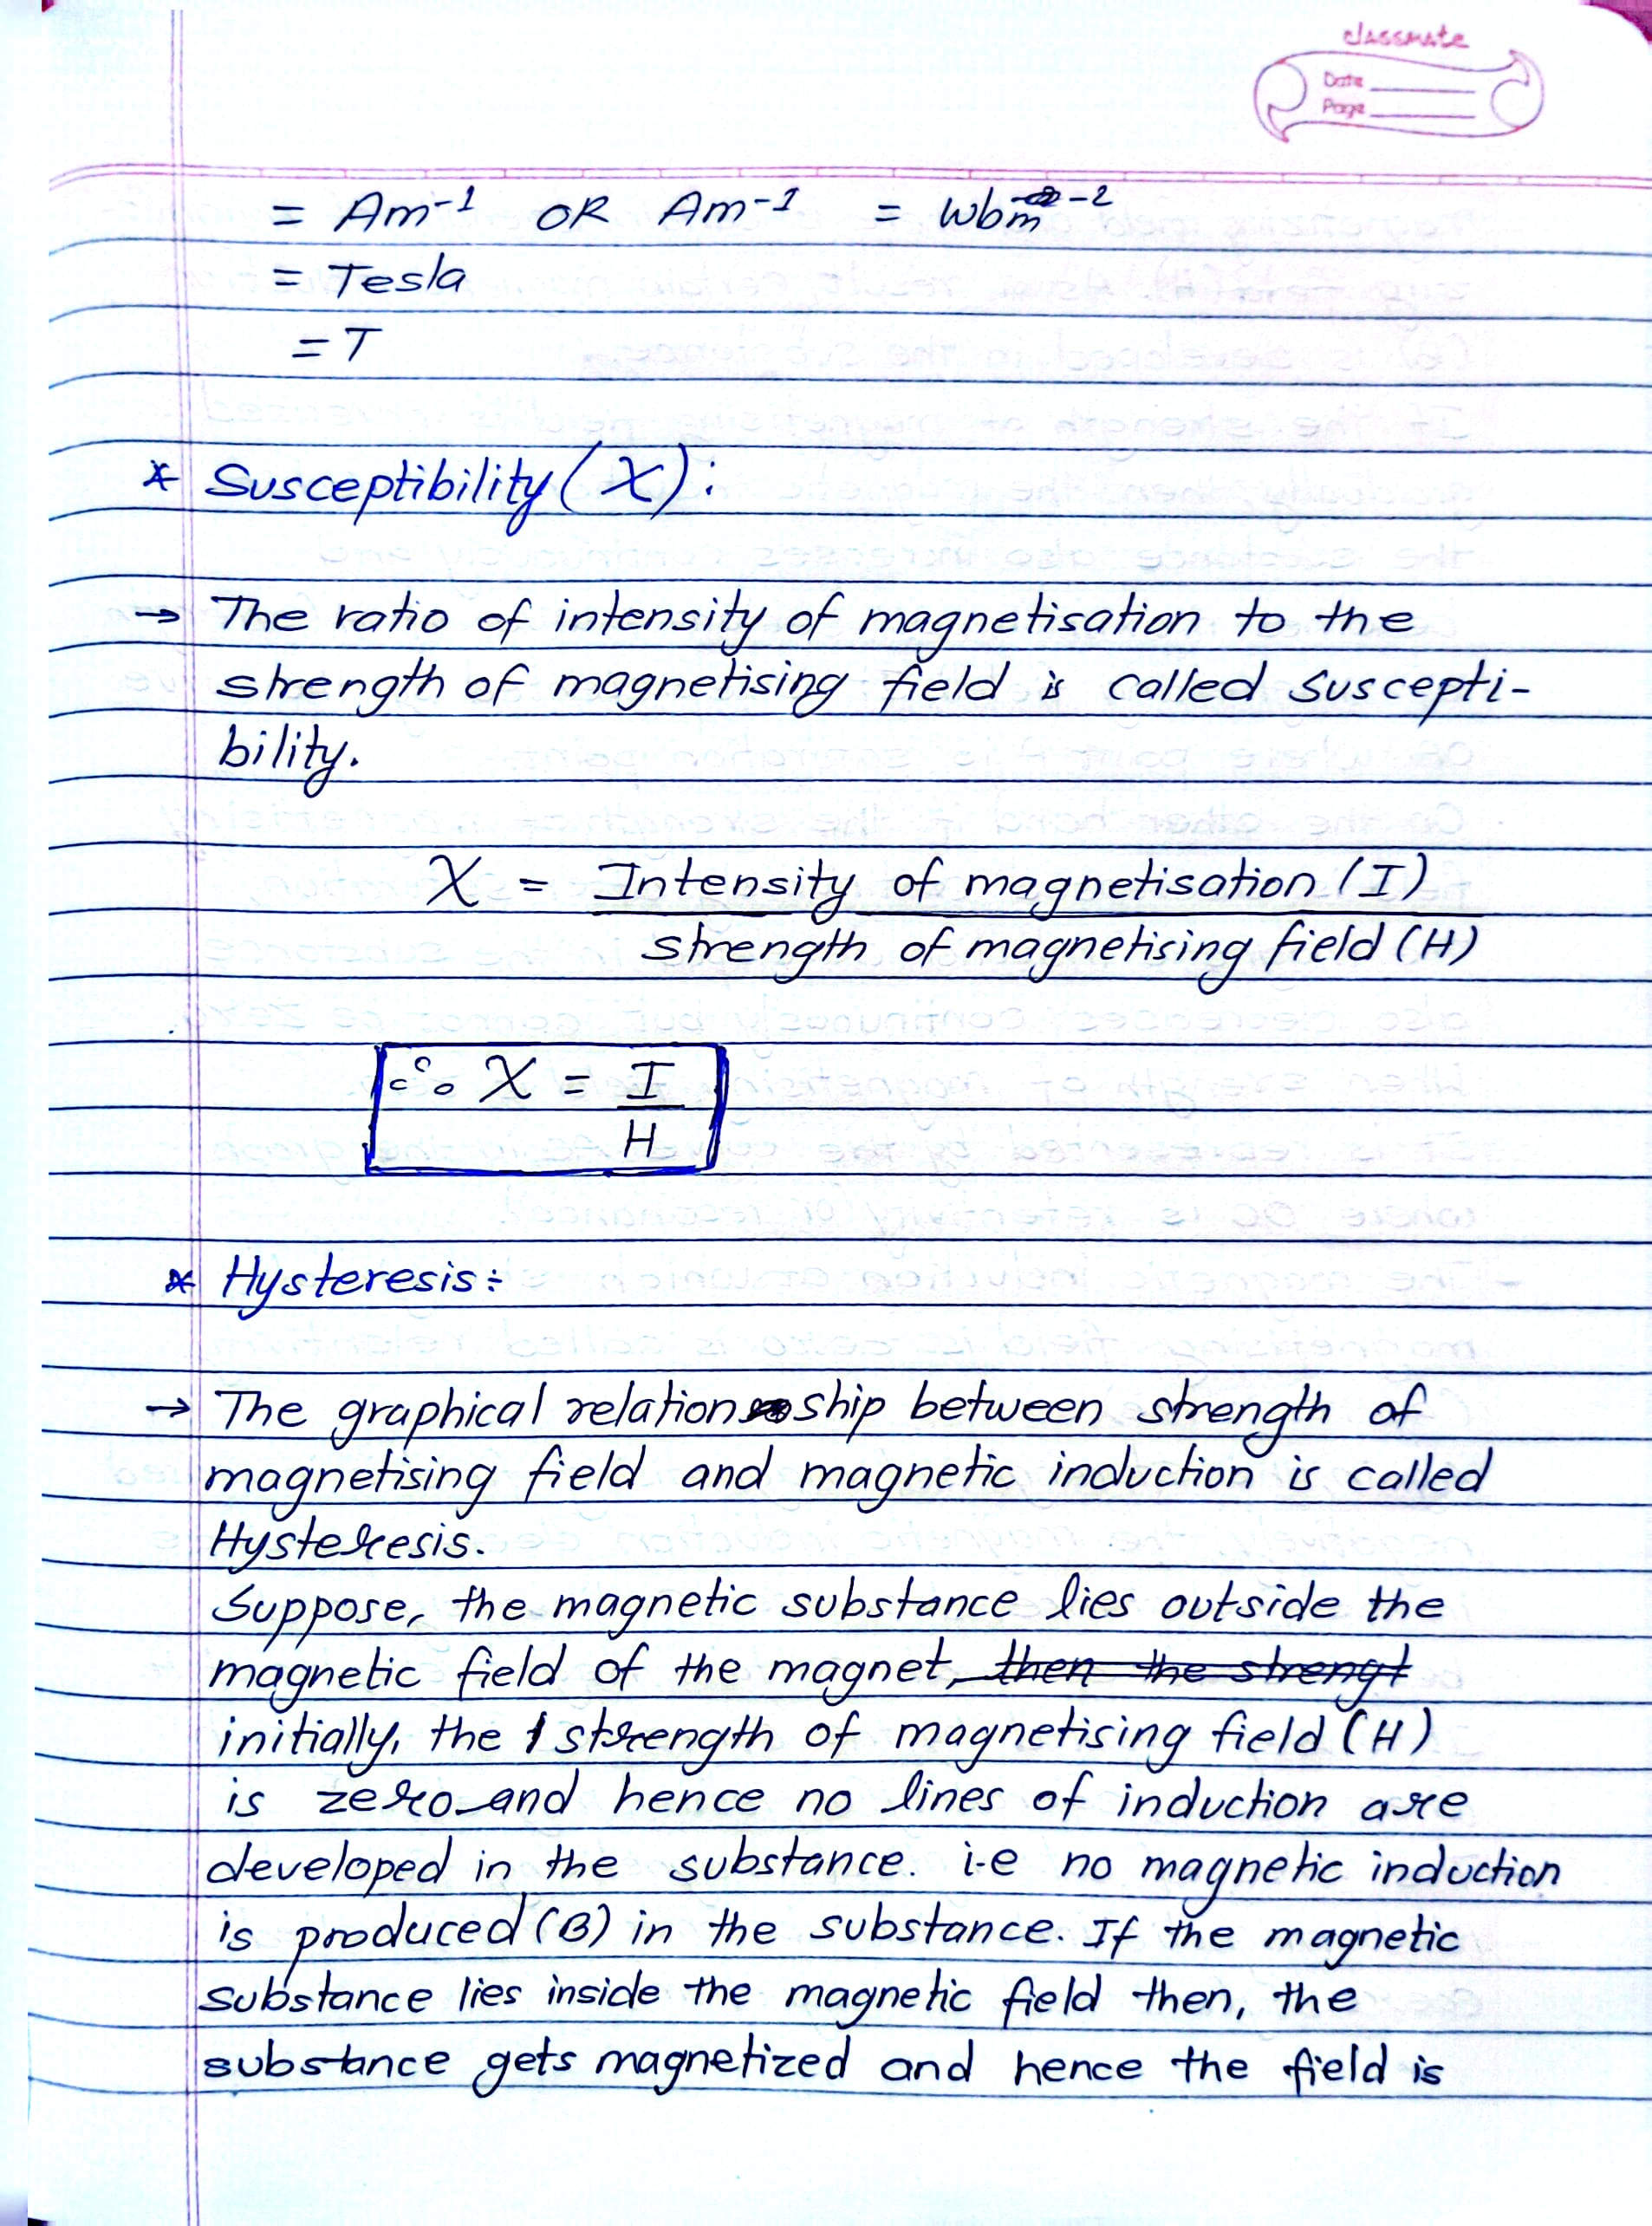 classmate
Date
Page
= Am⁻¹ OR Am⁻¹ = Wbm⁻²
= Tesla
= T
* Susceptibility (χ):
→ The ratio of intensity of magnetisation to the
strength of magnetising field is called suscepti-
bility.
χ = Intensity of magnetisation (I)
strength of magnetising field (H)
∴ χ = I
H
* Hysteresis:
→ The graphical relationship between strength of
magnetising field and magnetic induction is called
Hysteresis.
Suppose, the magnetic substance lies outside the
magnetic field of the magnet, then the strengt
initially, the strength of magnetising field (H)
is zero and hence no lines of induction are
developed in the substance. i.e no magnetic induction
is produced (B) in the substance. If the magnetic
substance lies inside the magnetic field then, the
substance gets magnetized and hence the field is